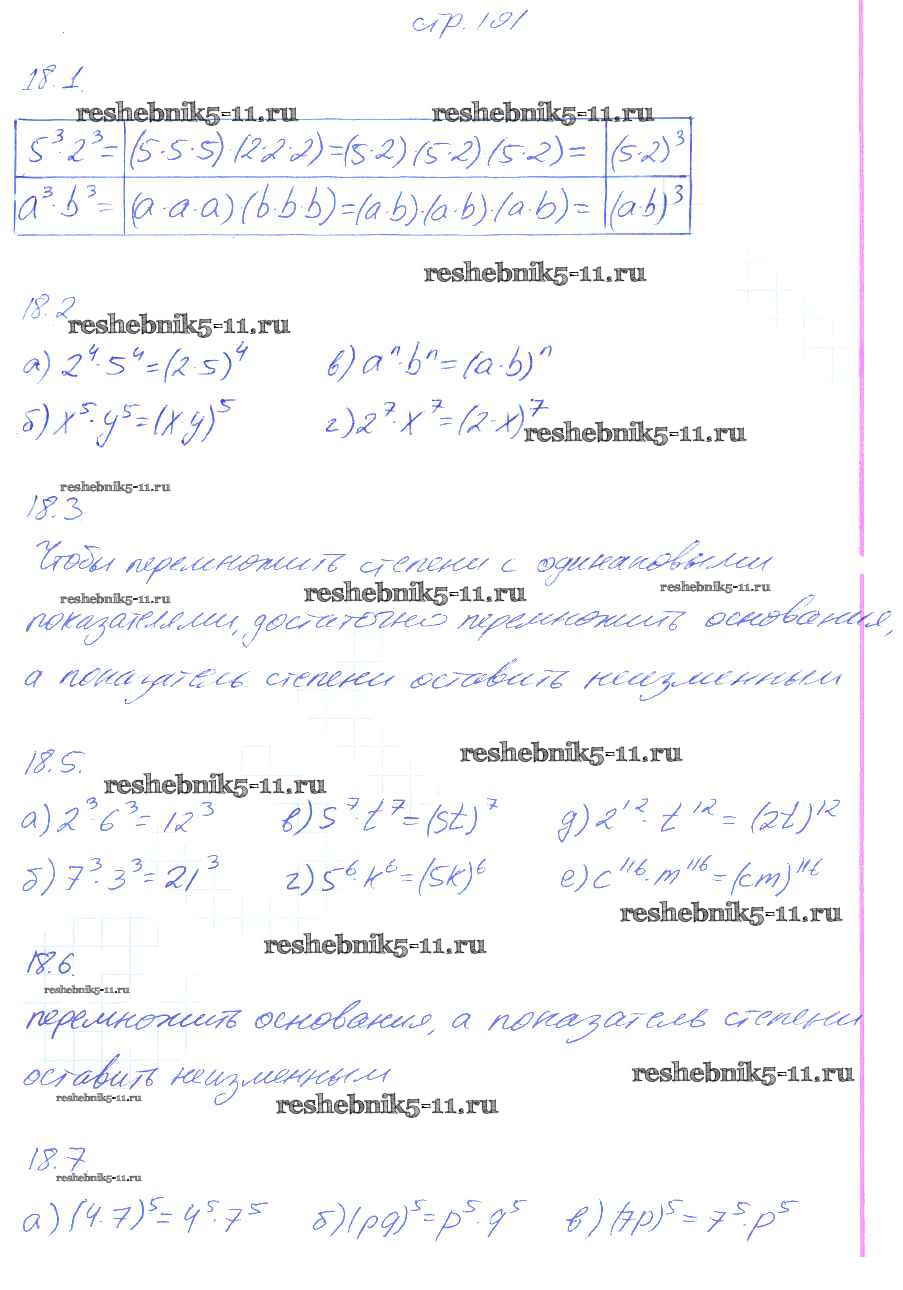 стр. 191
18.1.
reshebnik5-11.ru reshebnik5-11.ru
5³·2³= (5·5·5)·(2·2·2)=(5·2)(5·2)(5·2)= (5·2)³
a³·b³= (a·a·a)(b·b·b)=(a·b)·(a·b)·(a·b)= (a·b)³
reshebnik5-11.ru
18.2
reshebnik5-11.ru
а) 2⁴·5⁴=(2·5)⁴ в) aⁿ·bⁿ=(a·b)ⁿ
б) x⁵·y⁵=(x·y)⁵ г) 2⁷·x⁷=(2·x)⁷
reshebnik5-11.ru
reshebnik5-11.ru
18.3
Чтобы перемножить степени с одинаковыми
reshebnik5-11.ru reshebnik5-11.ru reshebnik5-11.ru
показателями, достаточно перемножить основания,
а показатель степени оставить неизменным
18.5.
reshebnik5-11.ru
reshebnik5-11.ru
а) 2³·6³=12³ в) 5⁷·t⁷=(5t)⁷ д) 2¹²·t¹²=(2t)¹²
б) 7³·3³=21³ г) 5⁶·k⁶=(5k)⁶ е) c¹¹⁶·m¹¹⁶=(cm)¹¹⁶
reshebnik5-11.ru
reshebnik5-11.ru
18.6.
reshebnik5-11.ru
перемножить основания, а показатель степени
оставить неизменным
reshebnik5-11.ru
reshebnik5-11.ru
reshebnik5-11.ru
18.7
reshebnik5-11.ru
а) (4·7)⁵=4⁵·7⁵ б) (pq)⁵=p⁵·q⁵ в) (7p)⁵=7⁵·p⁵